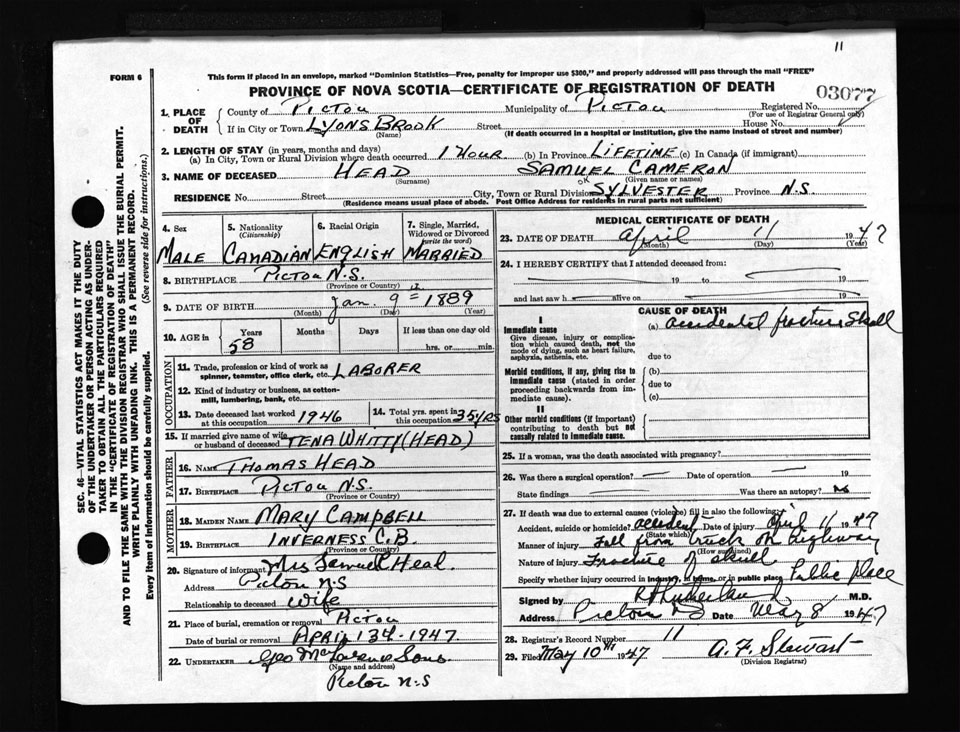 11
FORM 6
This form if placed in an envelope, marked "Dominion Statistics—Free, penalty for improper use $300," and properly addressed will pass through the mail "FREE"
PROVINCE OF NOVA SCOTIA—CERTIFICATE OF REGISTRATION OF DEATH
03077
1. PLACE OF DEATH
County of Pictou Municipality of Pictou Registered No.
(For use of Registrar General only)
If in City or Town Lyons Brook Street House No.
(Name) (If death occurred in a hospital or institution, give the name instead of street and number)
2. LENGTH OF STAY (in years, months and days)
(a) In City, Town or Rural Division where death occurred 1 Hour (b) In Province Lifetime (c) In Canada (if immigrant)
3. NAME OF DECEASED HEAD SAMUEL CAMERON
(Surname) (Given name or names)
RESIDENCE No. Street City, Town or Rural Division SYLVESTER Province N.S.
(Residence means usual place of abode. Post Office Address for residents in rural parts not sufficient)
SEC. 46—VITAL STATISTICS ACT MAKES IT THE DUTY
OF THE UNDERTAKER OR PERSON ACTING AS UNDER-
TAKER TO OBTAIN ALL THE PARTICULARS REQUIRED
IN THE "CERTIFICATE OF REGISTRATION OF DEATH"
AND TO FILE THE SAME WITH THE DIVISION REGISTRAR WHO SHALL ISSUE THE BURIAL PERMIT.
WRITE PLAINLY WITH UNFADING INK. THIS IS A PERMANENT RECORD.
Every item of information should be carefully supplied. (See reverse side for instructions.)
4. Sex 5. Nationality (Citizenship) 6. Racial Origin 7. Single, Married, Widowed or Divorced (write the word)
MALE CANADIAN ENGLISH MARRIED
8. BIRTHPLACE PICTOU N.S.
(Province or Country)
9. DATE OF BIRTH Jan. 9th 1889
(Month) (Day) (Year)
10. AGE in Years Months Days If less than one day old
58 hrs. or min.
OCCUPATION
11. Trade, profession or kind of work as spinner, teamster, office clerk, etc. LABORER
12. Kind of industry or business, as cotton-mill, lumbering, bank, etc.
13. Date deceased last worked at this occupation 1946
14. Total yrs. spent in this occupation 35 yrs
15. If married give name of wife or husband of deceased TENA WHITTY (HEAD)
FATHER
16. NAME THOMAS HEAD
17. BIRTHPLACE PICTOU N.S.
(Province or Country)
MOTHER
18. MAIDEN NAME MARY CAMPBELL
19. BIRTHPLACE INVERNESS C.B.
(Province or Country)
20. Signature of informant Mrs Samuel Head
Address Pictou N.S
Relationship to deceased Wife
21. Place of burial, cremation or removal Pictou
Date of burial or removal APRIL 13th 1947
22. UNDERTAKER Geo Sons
(Name and address)
Pictou N.S
MEDICAL CERTIFICATE OF DEATH
23. DATE OF DEATH April 11 1947
(Month) (Day) (Year)
24. I HEREBY CERTIFY that I attended deceased from:
19 to 19
and last saw h alive on 19
CAUSE OF DEATH
I
Immediate cause
Give disease, injury or complication which caused death, not the mode of dying, such as heart failure, asphyxia, asthenia, etc.
(a) accidental fracture Skull
due to
Morbid conditions, if any, giving rise to immediate cause (stated in order proceeding backwards from immediate cause).
(b)
due to
(c)
II
Other morbid conditions (if important) contributing to death but not causally related to immediate cause.
25. If a woman, was the death associated with pregnancy?
26. Was there a surgical operation? Date of operation 19
State findings Was there an autopsy? No
27. If death was due to external causes (violence) fill in also the following:
Accident, suicide or homicide? accident Date of injury April 11 1947
(State which)
Manner of injury Fall from truck on highway
(How sustained)
Nature of injury Fracture of skull
Specify whether injury occurred in industry, in home, or in public place Public place
Signed by M.D.
Address Pictou NS Date May 8 1947
28. Registrar's Record Number 11
29. Filed May 10th 1947 A. F. Stewart
(Division Registrar)